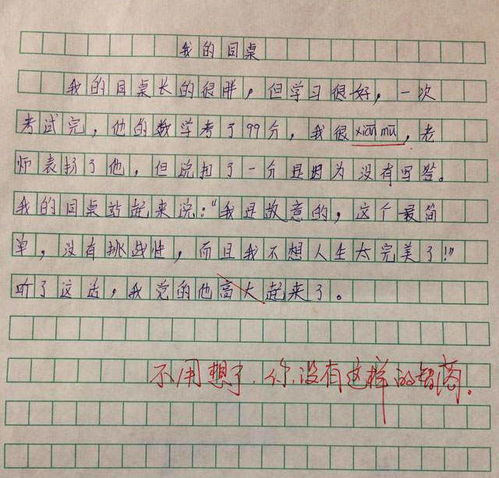 我的同桌
我的同桌长的很胖，但学习很好，一次
考试完，他的数学考了99分，我很xiàn mù，老
师表扬了他，但说扣了一分是因为没有写答。
我的同桌站起来说：“我是故意的，这个最简
单，没有挑战性，而且我不想人生太完美了！”
听了这话，我觉的他高大起来了。
不用想了，你没有这样的智商。